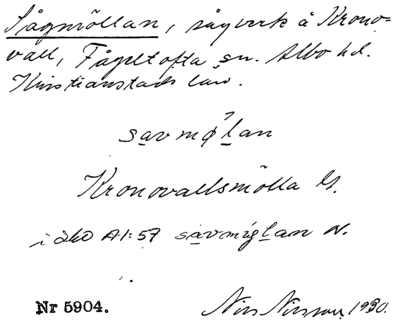 Sågmöllan, sågverk å Krono-
vall, Fågeltofta sn. Albo hd.
Kristianstads län.
savmø̍lan
Kronovallsmölla G.
i ako A1:57 savmǿlan N.
Nr 5904.
Nils Nilsson, 1930.